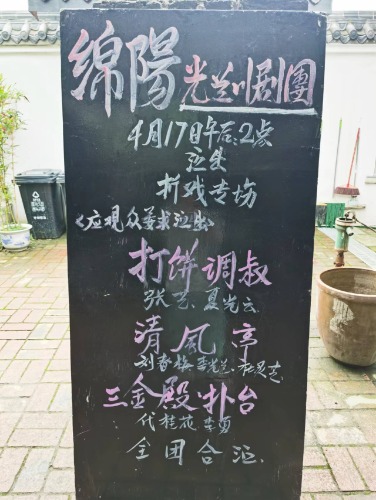 绵陽光兰川剧團
4月17日午后:2点
泣出
折戏专场
<应观众要求泣出>
打饼调叔
张 夏光云
清风亭
刘春梅 李光兰
三金殿·扑台
代桂花 李勇
全团合泣